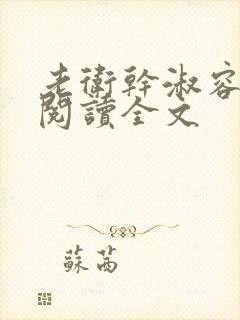 老衛幹淑容
閱讀全文
蘇茜